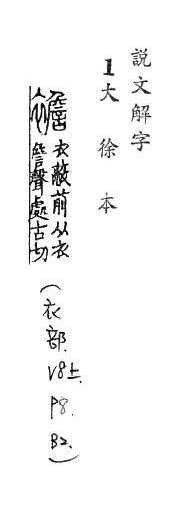 説文解字
1大徐本
襜 衣蔽前从衣
詹聲處占切
(衣部. V8上. P8. B2.)